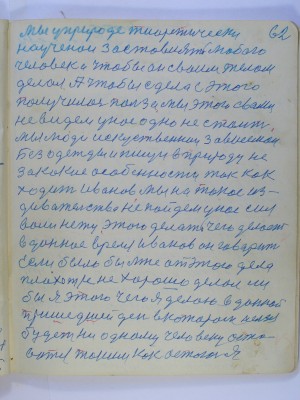 62
Мы у природе тиоретически
наученои заставляти любого
человека чтобы он своим телом
делал А чтобы сделать с этого
получилось польза мы этого сами
не видем у нас одно не стоит
мы люди искуственои зависемои
Без одежды и пищи в природу не
за какие особенности так как
ходит Иванов мы на такое из-
девательство не пойдем у нас сил
воли нету этого делать чего делает
в данное время Иванов он говорит
если было бы мне от этого дела
плохо я не хорошо делал ли
бы я этого чего я делаю в данной
пришедшей ден в котором нельзя
будет ни одному человеку оста-
ватся таким как остался я